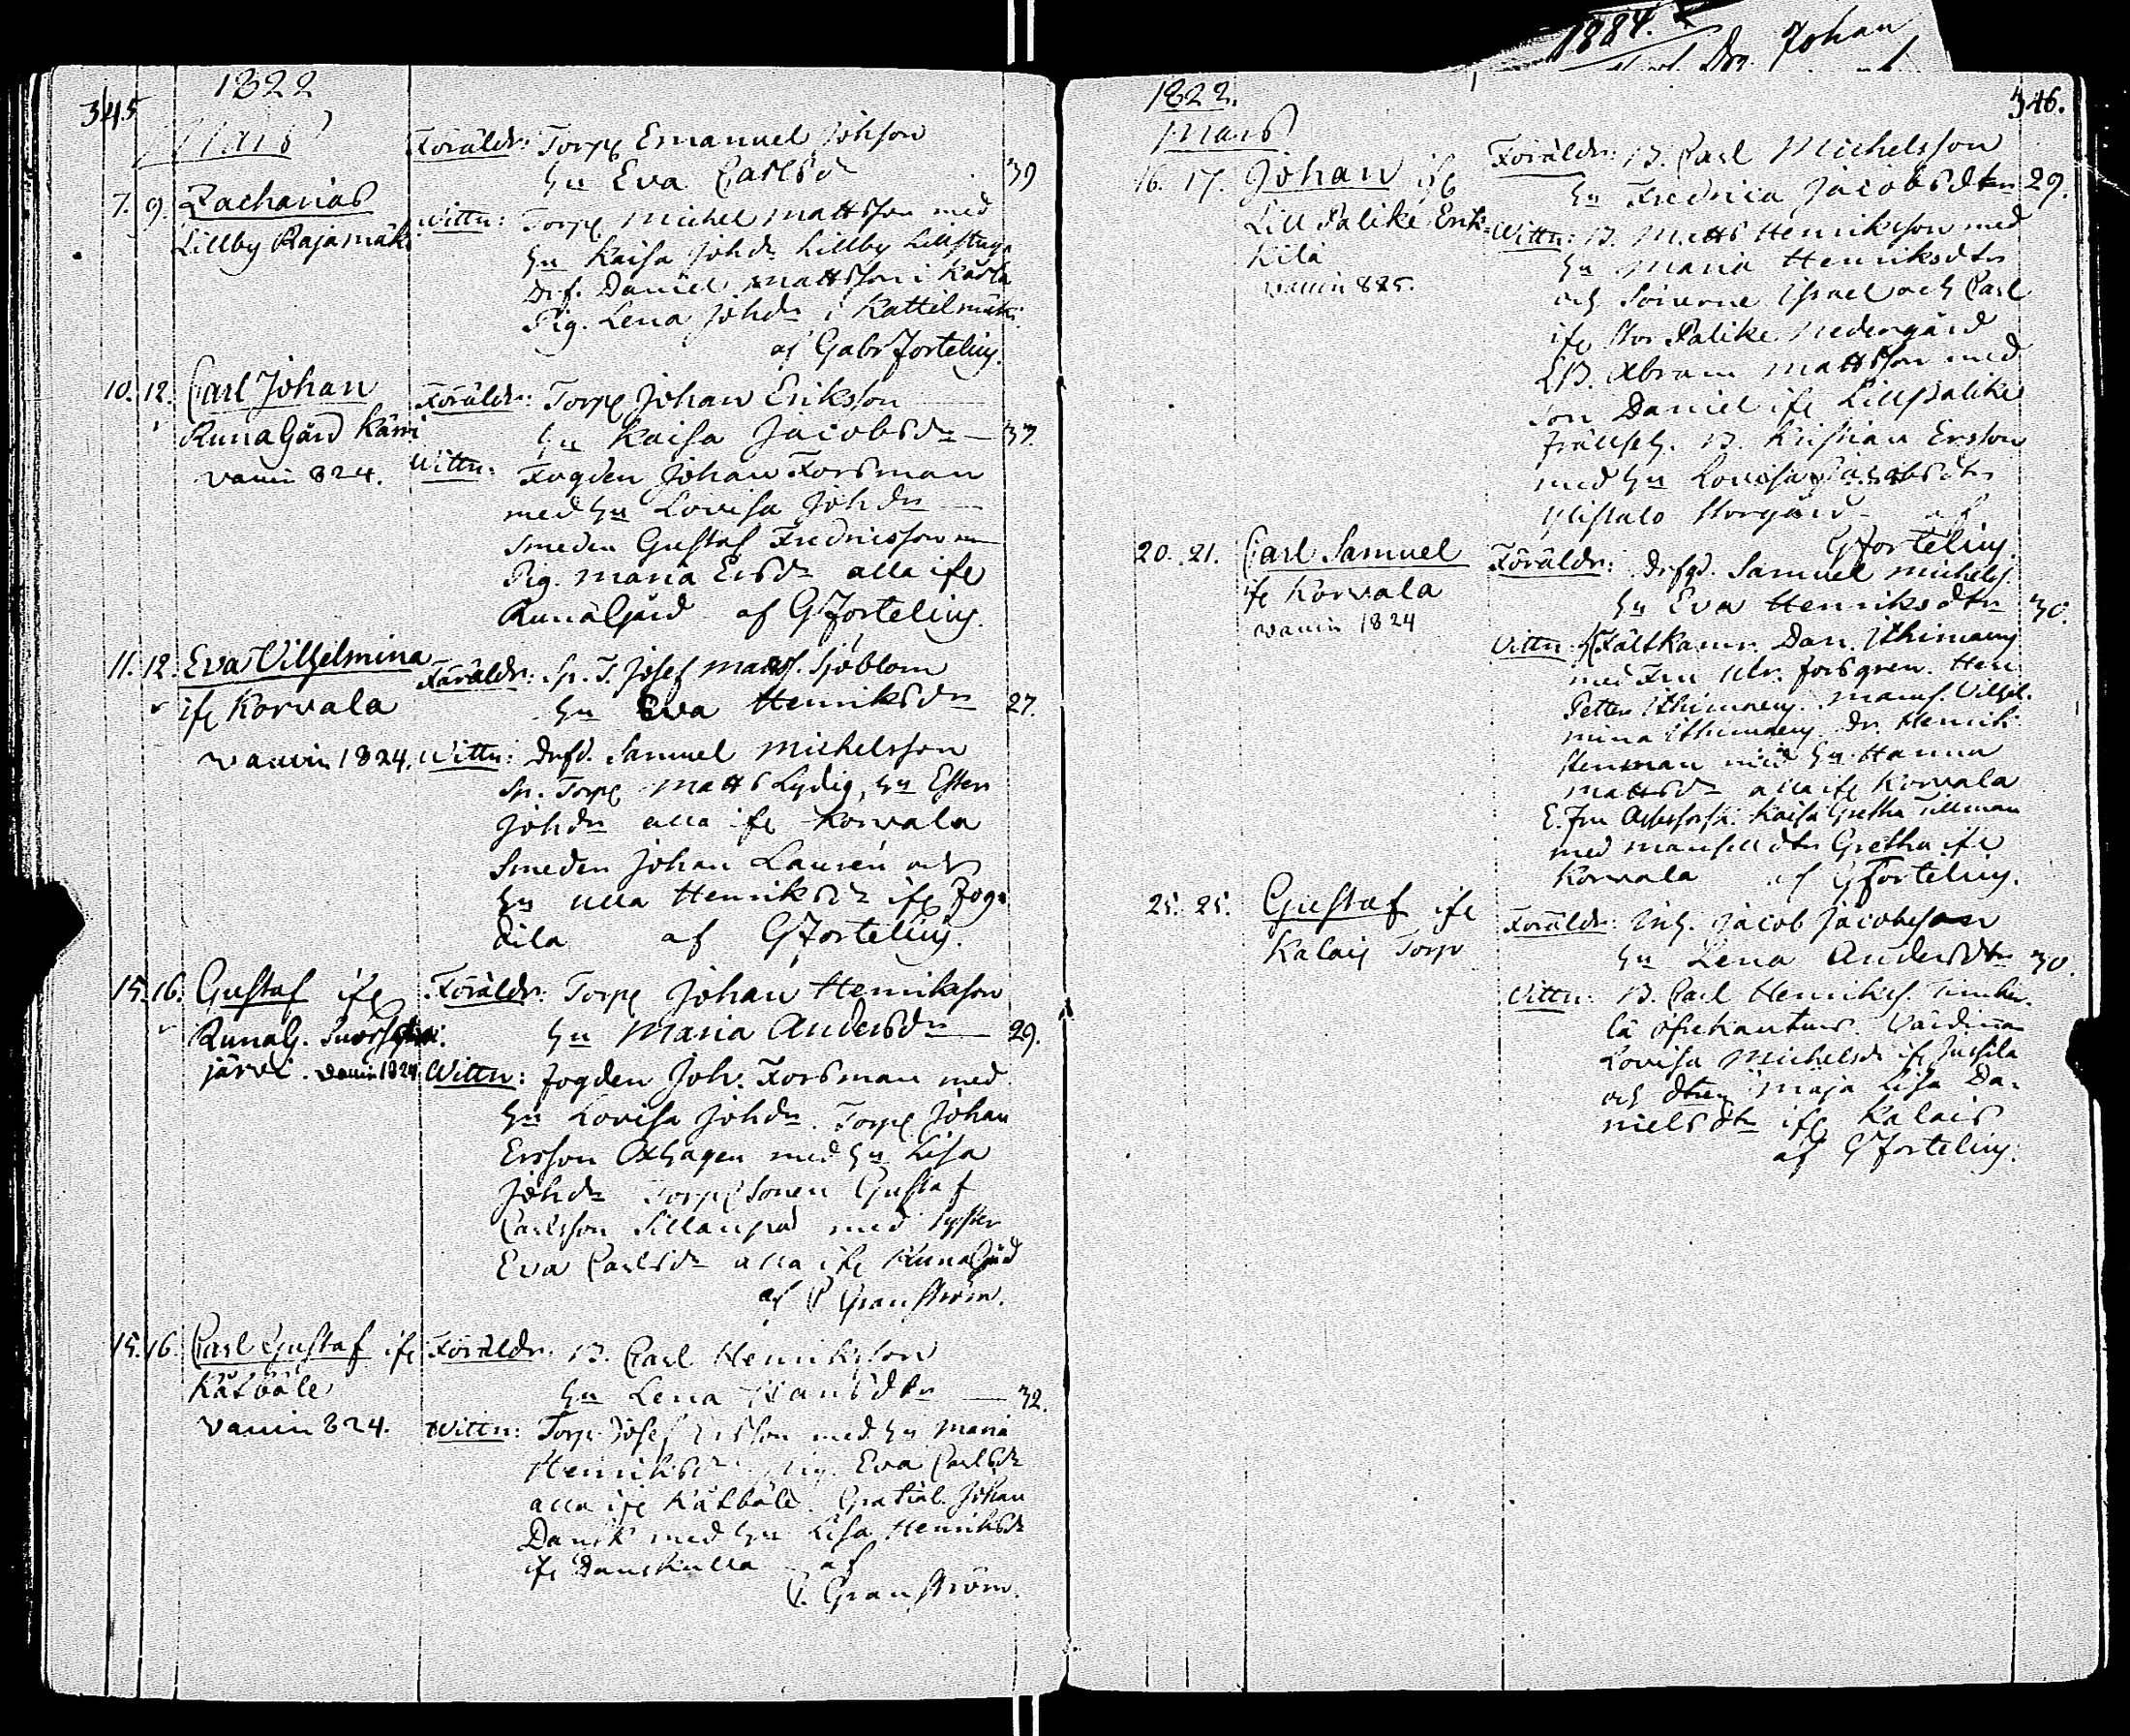 1884.
Dr. Johan
345
1822
Mars
7. 9. Zacharias
Lillby Rajamäki
Föräldr: Torp Emanuel Johson
Hu Eva Carlsdr 39
Wittn: Torp. Michel Mattsson med
Hu Kaisa Johdr Lillby Lillstuga
Drf. Daniel Mattsson i Kårla
Pig. Lena Johdr i Kattilmäki
af Gabr Fortelius.
10. 12. Carl Johan
RunaGård Kärri
vaccin 824.
Föräldr: Torp Johan Eriksson
Hu Kaisa Jacobsdr 37.
Wittn: Fogden Johan Forsman
med Hu Lovisa Johdr
Smeden Gustaf Fredricsson
Pig. Maria Ersdr alla ifr
RunaGård af GFortelius.
11. 12. Eva Vilhelmina
ifr Korvala
vaccin 1824.
Föräldr: Sp. T. Josef Matss. Sjöblom
Hu Eva Henriksdr 27.
Wittn: Drfd. Samuel Michelsson
Sp. Torp Matts Lydig, Hu Ester
Johdr alla ifr Korvala
Smeden Johan Laurén och
Hu Ulla Henriksdr ifr
dila af GFortelius.
15. 16. Gustaf ifr
RunaG.
järvi. vaccin 1824
Föräldr: Torp Johan Henriksson
Hu Maria Andersdr 29.
Wittn: Fogden Joh. Forsman med
Hu Lovisa Johdr. Torp. Johan
Ersson Oxhagen med Hu Lisa
Johdr Torp Sonen Gustaf
Carlsson Sillanpää med syster
Eva Carlsdr alla ifr RunaGård
af C Granström.
15. 16. Carl Gustaf ifr
Kätböle
vaccin 824.
Föräldr: B. Carl Henriksson
Hu Lena 32.
Wittn: Torp Josef Ersson med Hu Maria
Henriksdr Pig. Eva Carlsdr
alla ifr Kätböle. Gratial. Johan
Dansk med Hu Lisa Henriksdr
ifr Danskulla af
C. Granström.
1822.
346.
Mars
16. 17. Johan ifr
Lill Palike Erk-
Kilä
vaccin 825.
Föräldr: B. Carl Michelsson
Hu Fredrica Jacobsdtr 29.
Wittn: B. Matts Henriksson med
Hu Maria Henriksdtr
och Sönerne Israel och Carl
ifr Stor Palike Nedergård
LB. Abram Mattsson med
Son Daniel ifr LillPalike
B. Kristian Ersson
med Hu Lovisa Jacobsdtr
Storgård af
GFortelius.
20. 21. Carl Samuel
ifr Korvala
vaccin 1824
Föräldr: Drfgd. Samuel Michels.
Hu Eva Henriksdtr 30.
Wittn: Fältkamr. Dan. Ithimaeus
med Fru Ulr. Forsgren. Herr
Petter Ithimaeus. Mams. Vilhel-
mina Ithimaeus. Dr. Henrik
Stenman med Hu Hanna
Mattsdr alla ifr Korvala
E. Fru Kaisa Gretha Tillman
med Mamsell dtr Gretha ifr
Korvala af GFortelius.
25. 25. Gustaf ifr
Kalais Torp
Föräldr: Inh. Jacob Jacobsson
Hu Lena Andersdtr 30.
Wittn: B. Carl Henrikss.
Värdinnan
Lovisa Michelsdr ifr Jussila
och dtren Maja Lisa Da-
nielsdtr ifr Kalais
af GFortelius.